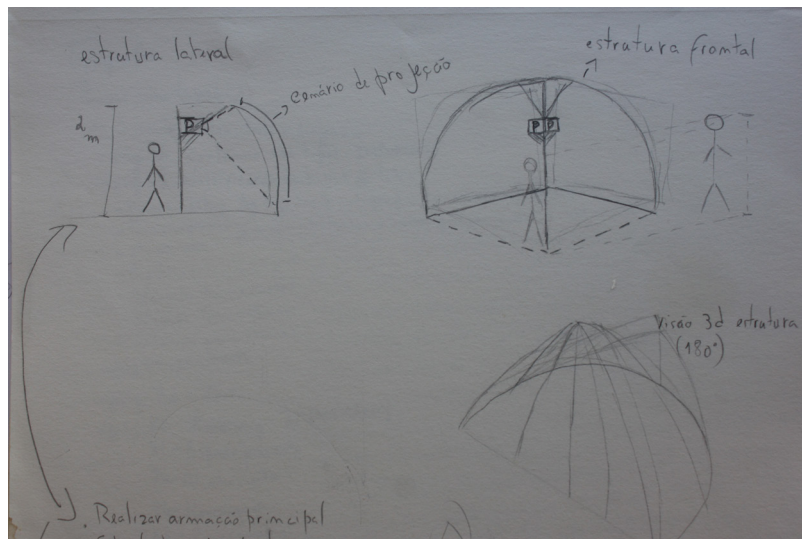 estrutura lateral
cenário de projeção
2
m
P
estrutura frontal
P P
visão 3d estrutura
(180°)
. Realizar armação principal